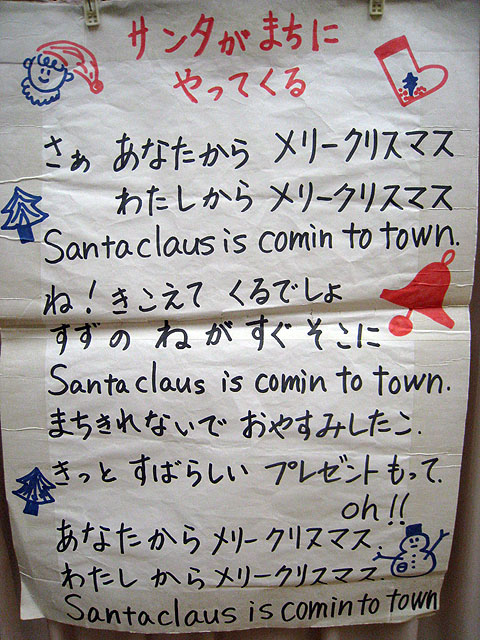 サンタがまちに
やってくる
さぁ あなたから メリークリスマス
わたしから メリークリスマス
Santaclaus is comin to town.
ね!きこえて くるでしょ
すずの ねが すぐ そこに
Santaclaus is comin to town.
まちきれないで おやすみしたこ.
きっと すばらしい プレゼント もって.
oh!!
あなたから メリークリスマス.
わたし から メリークリスマス.
Santaclaus is comin to town